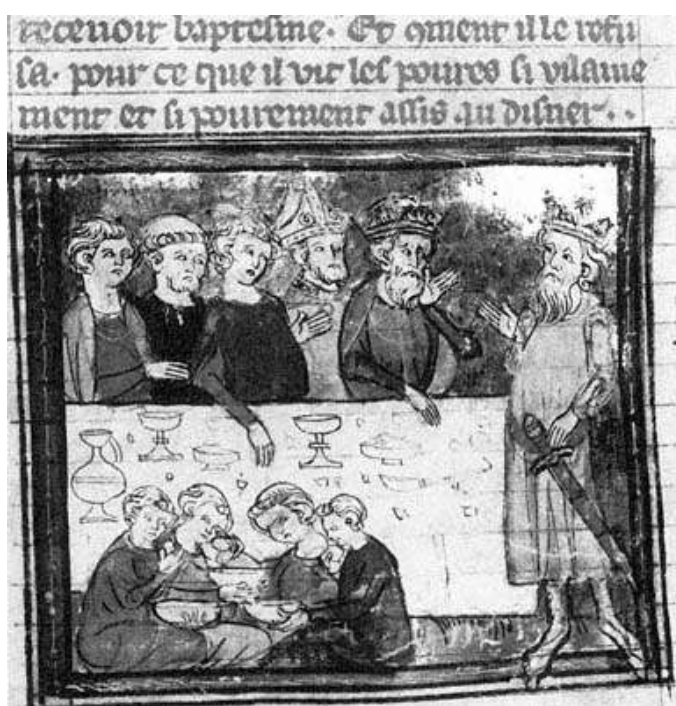 receuoir baptesme. Et ꝯment il le refu
sa. pour ce que il vit les poures si vilaine
ment et si pourement assis au disner..